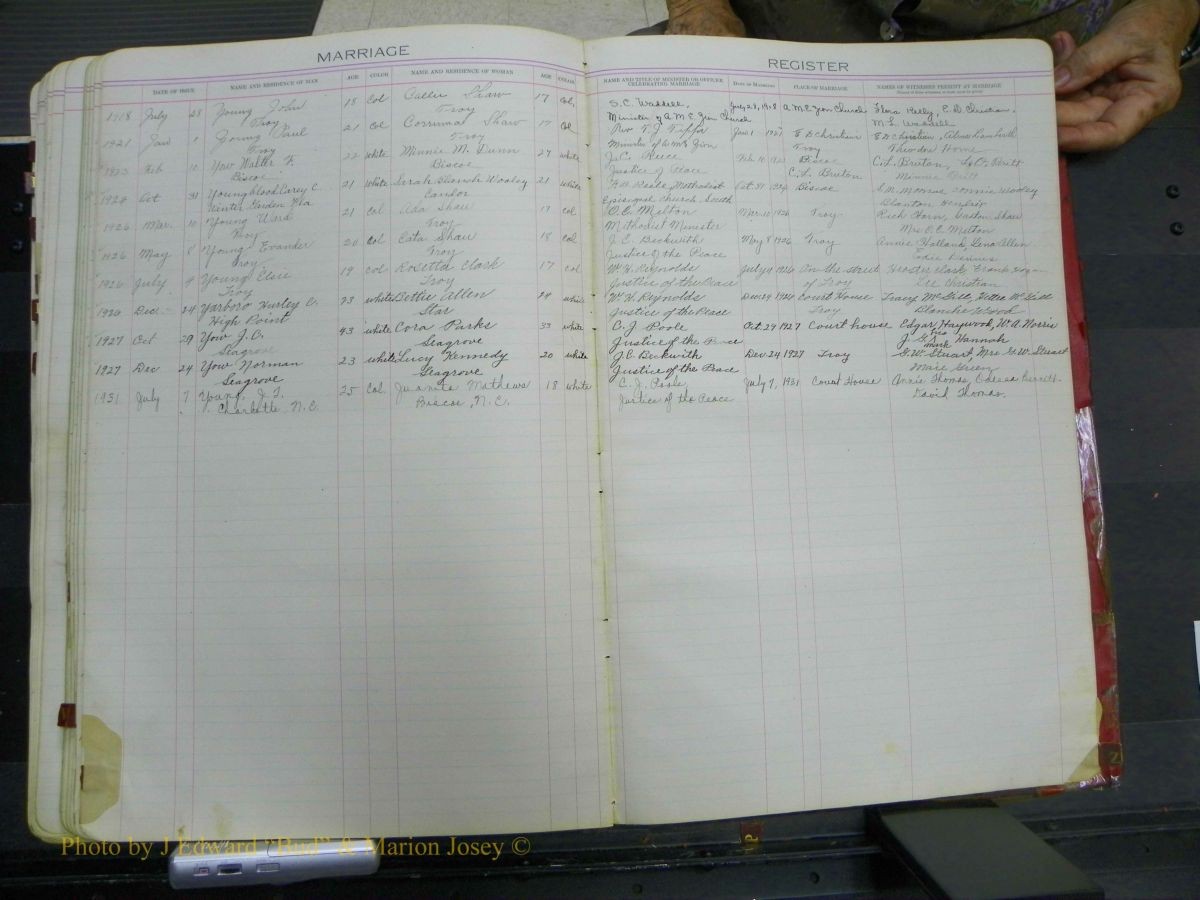 MARRIAGE
REGISTER
DATE OF ISSUE NAME AND RESIDENCE OF MAN AGE COLOR NAME AND RESIDENCE OF WOMAN AGE COLOR NAME AND TITLE OF MINISTER OR OFFICER CELEBRATING MARRIAGE DATE OF MARRIAGE PLACE OF MARRIAGE NAMES OF WITNESSES PRESENT AT MARRIAGE
1918 July 28 Young John 18 Col Callie Shaw 17 Col. S. C. July 28, 1918 A M E Zion Church Kelly, E. D. Christian,
Troy Troy Minister of A M E Zion Church M. L.
1921 Jan 1 Young Paul 21 Col Shaw 17 Col Rev. T. J. Jan 1 1921 E D Christian E D Christian,
Troy Troy Minister of A M E Zion Troy Theodore Horne
1923 Feb 10 Yow Walter F. 22 White Minnie M. Dunn 27 white J. C. Feb 10 Biscoe C. L. Bruton,
Biscoe Biscoe Justice of Peace C. L. Bruton Minnie
1924 Oct 31 Youngblood Carey C. 21 White Sarah Blanch Wooley 21 white Methodist Oct 31 1924 Biscoe Monroe Connie Wooley
Winter Garden Fla Candor Episcopal Church South Blanton
1926 Mar. 10 Young Ward 21 Col Ada Shaw 17 Col O. C. Melton Mar. 10 1926 Troy Rich Horn, Shaw
Troy Troy Methodist Minister Mrs O. C. Melton
1926 May 8 Young Evander 20 Col Cata Shaw 18 Col J. C. Beckwith May 8 1926 Troy Annie Holland, Lena Allen
Troy Troy Justice of the Peace
1926 July 4 Young Elsie 19 Col Rosetta Clark 17 Col W. H. Reynolds July 4 1926 On the street Hester Clark, Frank
Troy Troy Justice of the Peace of Troy Christian
Dec. 24 Yarboro Hurley C. 23 white Lettie Allen 24 white W. H. Reynolds Dec 24 Court House Tracy McGill, McGill
High Point Star Justice of the Peace Troy Blanche Wood
1927 Oct 29 Yow J. C. 43 white Cora Parks 33 white C. J. Poole Oct. 29 1927 Court house Edgar Haywood, W. A. Norris
Seagrove Seagrove Justice of the Peace J. G. his mark Hannah
1927 Dec 24 Yow Norman 23 white Lucy Kennedy 20 white J. C. Beckwith Dec 24 1927 Troy G. W. Stuart, Mrs. G. W. Stuart
Seagrove Seagrove Justice of the Peace Marie Green
1931 July 7 Young, J. T. 25 Col. Juanita Mathews 18 white C. J. Poole July 7, 1931 Court House Annie Thomas,
Charlotte, N. C. Biscoe, N. C. Justice of the Peace David Thomas.
Z
Photo by J Edward "Bud" & Marion Josey ©